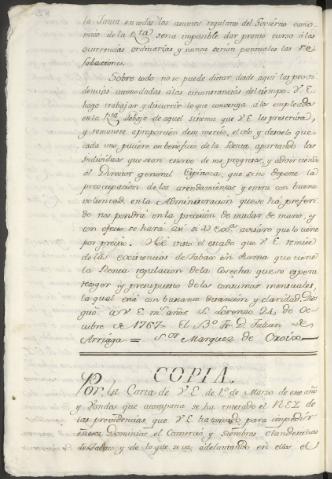 la Junta en todos los asuntos regulares del Govierno económico de la Rta. seria imposible dar pronto curso á las
ocurrencias ordinarias, y nunca serian puntuales las resoluciones.
Sobre todo no se puede dictar desde aquí las providencias acomodadas á las circunstancias del tiempo. V.E.
haga trabajar, y discurrir lo que convenga á los empleados
en la Rta. debajo de aquel sistema que V.E. les prescrivirá,
y remunere á proporcion de su merito, el celo, y desvelo que
cada uno pusiere en beneficio de la Renta apartando los
Individuos que sean estorvo de sus progresos, y advirtiendo
al Director general Espinosa, que si no depone la
preocupacion de los arrendamientos y entra con buena
voluntad en la Administracion que se ha preferido nos pondrá en la precision de mudar de mano, y
con efecto se hará asi si V. Exa. avisare que lo tiene
por preciso. He visto el estado que V.E. remite
de las existencias de Tabaco en Rama que tiene
la Renta regulacion de la Cosecha que se espera
recoger, y presupuesto de los consumos mensuales,
la qual está con bastante distincion y claridad. Dios
gue. á V.E. ms. años. S. Lorenzo 24 de Octubre de 1767. El Bo. Fr. Dn. Julian de
Arriaga = Sor. Marques de Croix =
COPIA.
Por la Carta de V.E. de 1o. de Marzo de este año
y Vandos que acompaña se ha enterado el REY de
las providencias que V.E. ha tomado para impedir
en esos Dominios el Comercio, y siembras clandestinas
de Tabaco, y de lo que se va adelantando en ellas el